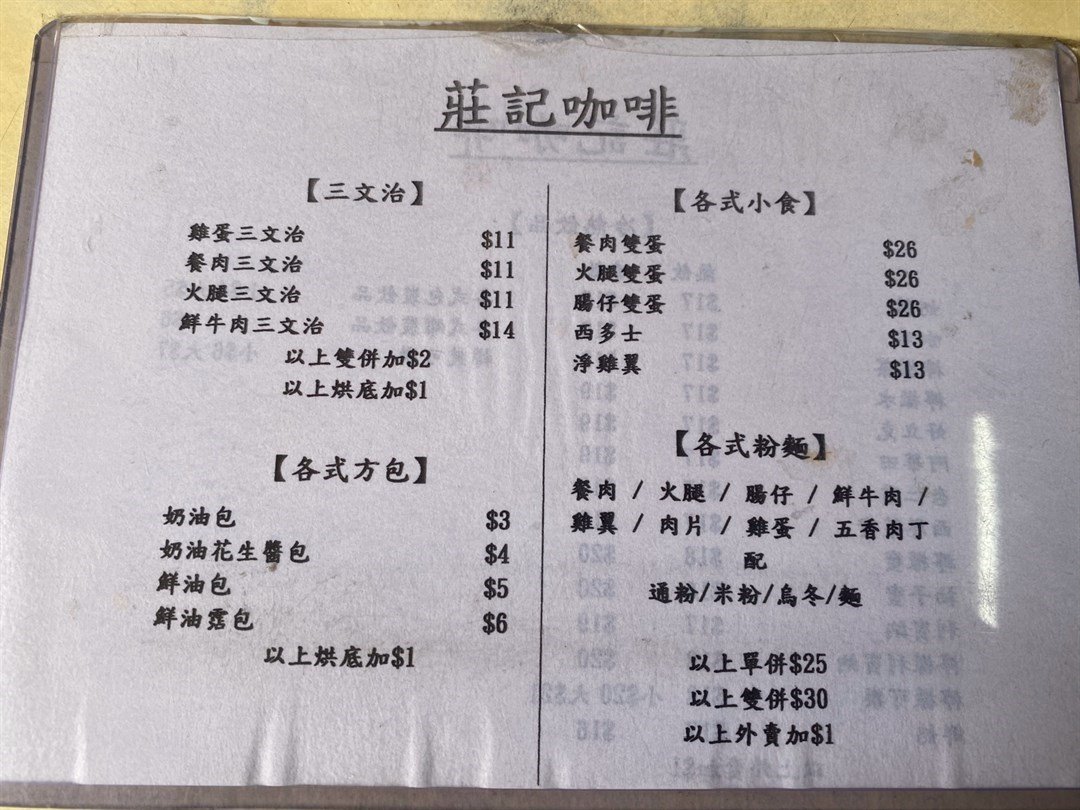 莊記咖啡
【三文治】
雞蛋三文治 $11
餐肉三文治 $11
火腿三文治 $11
鮮牛肉三文治 $14
以上雙併加$2
以上烘底加$1
【各式方包】
奶油包 $3
奶油花生醬包 $4
鮮油包 $5
鮮油霑包 $6
以上烘底加$1
【各式小食】
餐肉雙蛋 $26
火腿雙蛋 $26
腸仔雙蛋 $26
西多士 $13
淨雞翼 $13
【各式粉麵】
餐肉 / 火腿 / 腸仔 / 鮮牛肉 /
雞翼 / 肉片 / 雞蛋 / 五香肉丁
配
通粉/米粉/烏冬/麵
以上單併$25
以上雙併$30
以上外賣加$1